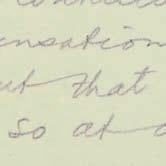 ensation
ut that
so at a